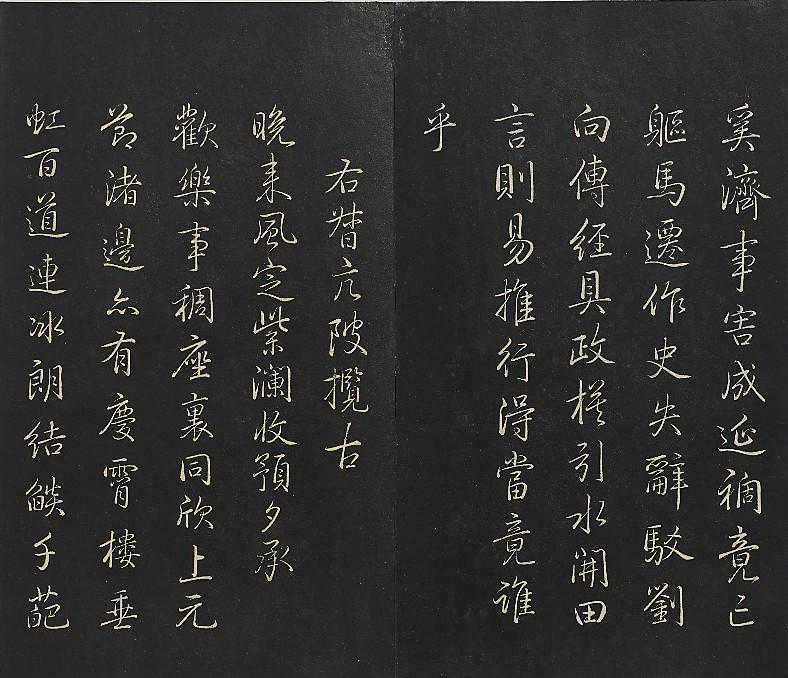 奚濟事害成延禍竟亡
軀馬遷作史失辭駁劉
向傳經具政模引水開田
言則易推行得當竟誰
乎
右督亢陂攬古
晚來風定紫瀾收預夕承
歡樂事稠座裏同欣上元
節渚邊亦有慶霄樓垂
虹百道連冰朗結燄千葩